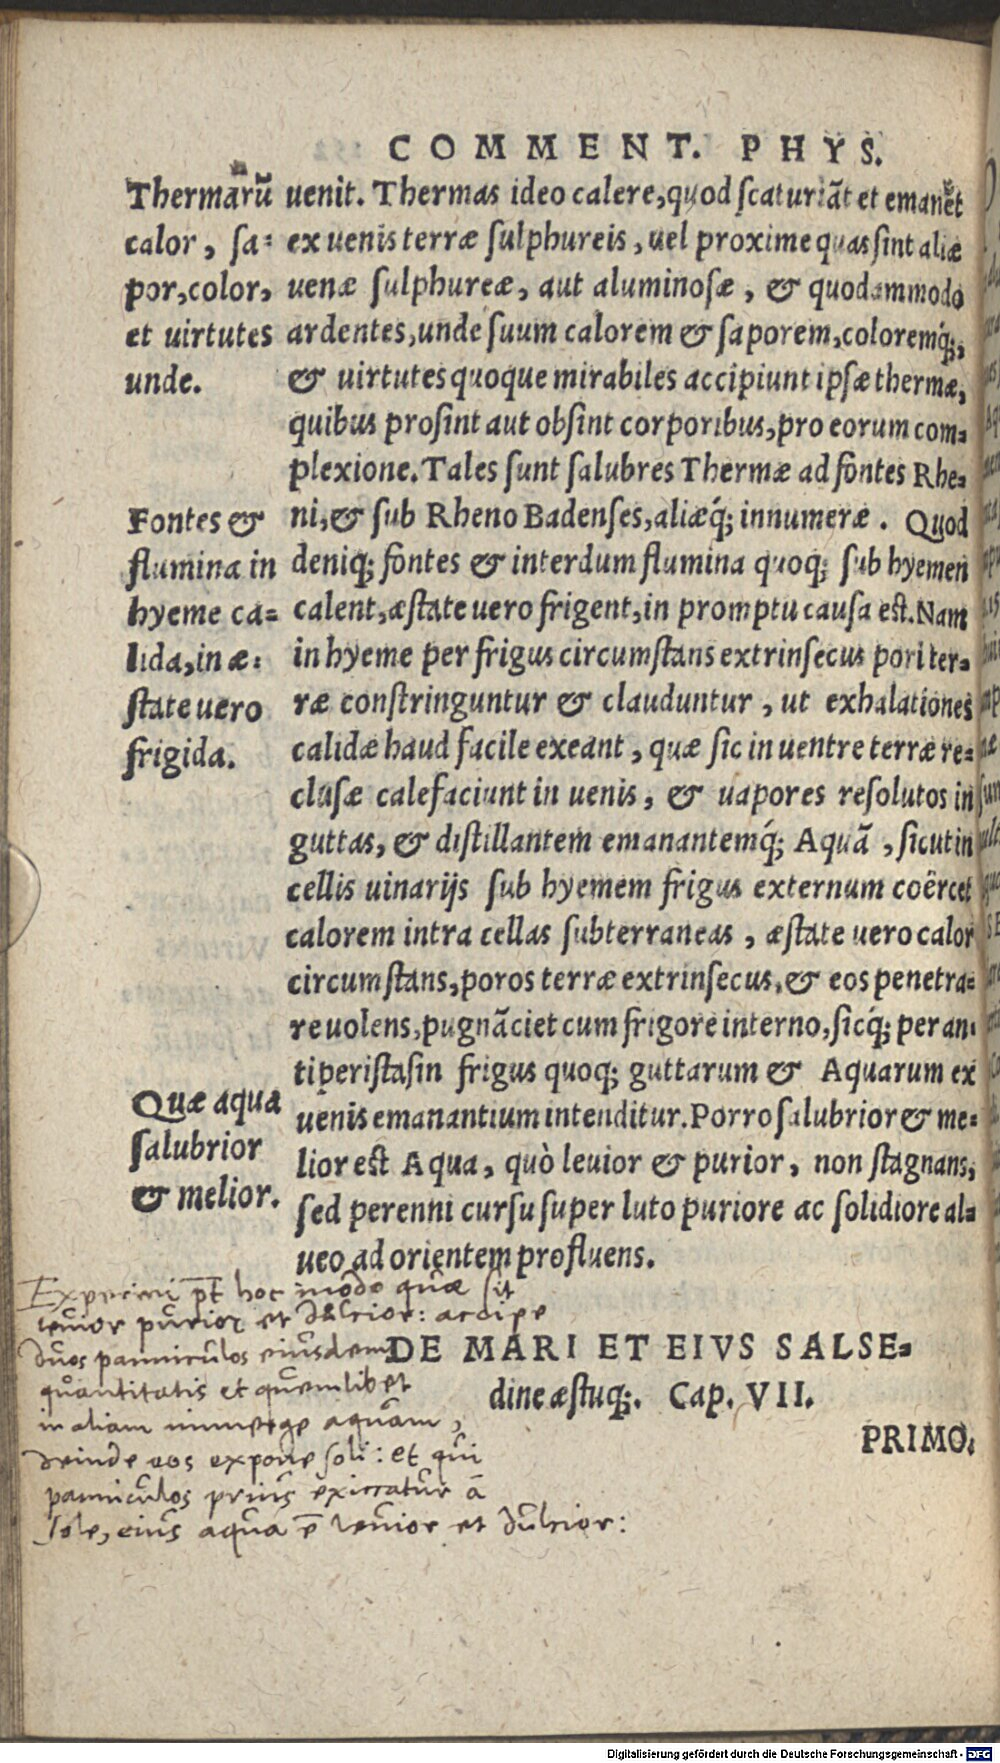 COMMENT. PHYS.
Thermarũ
calor, sa-
por, color,
et uirtutes
unde.
uenit. Thermas ideo calere, quod scaturiãt et emanẽt
ex uenis terræ sulphureis, uel proxime quas sint aliæ
uenæ sulphureæ, aut aluminosæ, & quodammodo
ardentes, unde suum calorem & saporem, coloremq́;,
& uirtutes quoque mirabiles accipiunt ipsæ thermæ,
quibus prosint aut obsint corporibus, pro eorum com-
plexione. Tales sunt salubres Thermæ ad fontes Rhe-
Fontes &
flumina in
hyeme ca-
lida, in æ-
state uero
frigida.
ni, & sub Rheno Badenses, aliæq́; innumeræ. Quod
deniq; fontes & interdum flumina quoq; sub hyemem
calent, æstate uero frigent, in promptu causa est. Nam
in hyeme per frigus circumstans extrinsecus pori ter-
ræ constringuntur & clauduntur, ut exhalationes
calidæ haud facile exeant, quæ sic in uentre terræ re-
clusæ calefaciunt in uenis, & uapores resolutos in
guttas, & distillantem emanantemq́; Aquã, sicut in
cellis uinarijs sub hyemem frigus externum coêrcet
calorem intra cellas subterraneas, æstate uero calor
circumstans, poros terræ extrinsecus, & eos penetra-
re uolens, pugnãciet cum frigore interno, sicq́; per an-
tiperistasin frigus quoq; guttarum & Aquarum ex
Quæ aqua
salubrior
& melior.
uenis emanantium intenditur. Porro salubrior & me-
lior est Aqua, quò leuior & purior, non stagnans,
sed perenni cursu super luto puriore ac solidiore al-
ueo ad orientem profluens.
pt̄ hoc modo quæ sit
leuior purior et dulcior: accipe
duos panniculos eiusdem
quantitatis et quemlibet
in aliam immerge aquam,
deinde eos expone soli: et qui
panniculos prius exiccatur ā
sole, eius aqua ē leuior et dulcior:
DE MARI ET EIVS SALSE-
dine æstuq;. Cap. VII.
PRIMO,
Digitalisierung gefördert durch die Deutsche Forschungsgemeinschaft - DFG